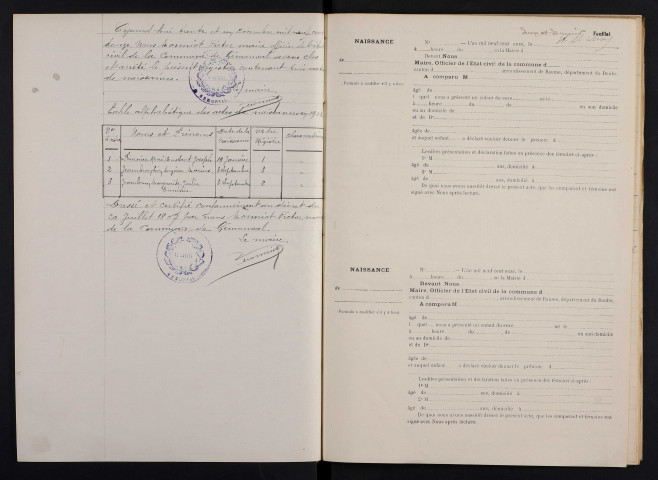 Cejourd'hui trente et un Décembre mil neuf cent
douze Nous Monniot Victor maire officier de l'état
civil de la Commune de Gémonval avons clos
et arrêté le présent registre contenant
de naissances.
Le maire
Table alphabétique des actes de naissances en 1912
Noms et Prénoms
Date de la Naissance
Nos du Registre
1 Joseph 19 Janvier 1
2 8 Septembre 3
3 Marguerite Julie 8 Septembre 2
Dressé et certifié conformément au décret du
20 Juillet 1807 par Nous Monniot Victor maire
de la Commune de Gémonval.
Le maire
Feuillet
NAISSANCE
N° — L'an mil neuf cent onze, le
à heure du en la Mairie d
Devant Nous
de
Maire, Officier de l'État civil de la commune d
canton d arrondissement de Baume, département du Doubs.
A comparu M
Formule à modifier s'il y a lieu
âgé de
l quel nous a présenté un enfant du sexe né le
à heure du de en son domicile
ou au domicile de
et de De
âgée de
et auquel enfant a déclaré vouloir donner le prénom d
Lesdites présentation et déclaration faites en présence des témoins ci-après :
1° M
âgé de ans, domicilié à
2° M
âgé de ans, domicilié à
De quoi nous avons aussitôt dressé le présent acte, que les comparant et témoins ont
signé avec Nous après lecture.
NAISSANCE
N° — L'an mil neuf cent onze, le
à heure du en la Mairie d
Devant Nous
de
Maire, Officier de l'État civil de la commune d
canton d arrondissement de Baume, département du Doubs.
A comparu M
Formule à modifier s'il y a lieu
âgé de
l quel nous a présenté un enfant du sexe né le
à heure du de en son domicile
ou au domicile de
et de De
âgée de
et auquel enfant a déclaré vouloir donner le prénom d
Lesdites présentation et déclaration faites en présence des témoins ci-après :
1° M
âgé de ans, domicilié à
2° M
âgé de ans, domicilié à
De quoi nous avons aussitôt dressé le présent acte, que les comparant et témoins ont
signé avec Nous après lecture.